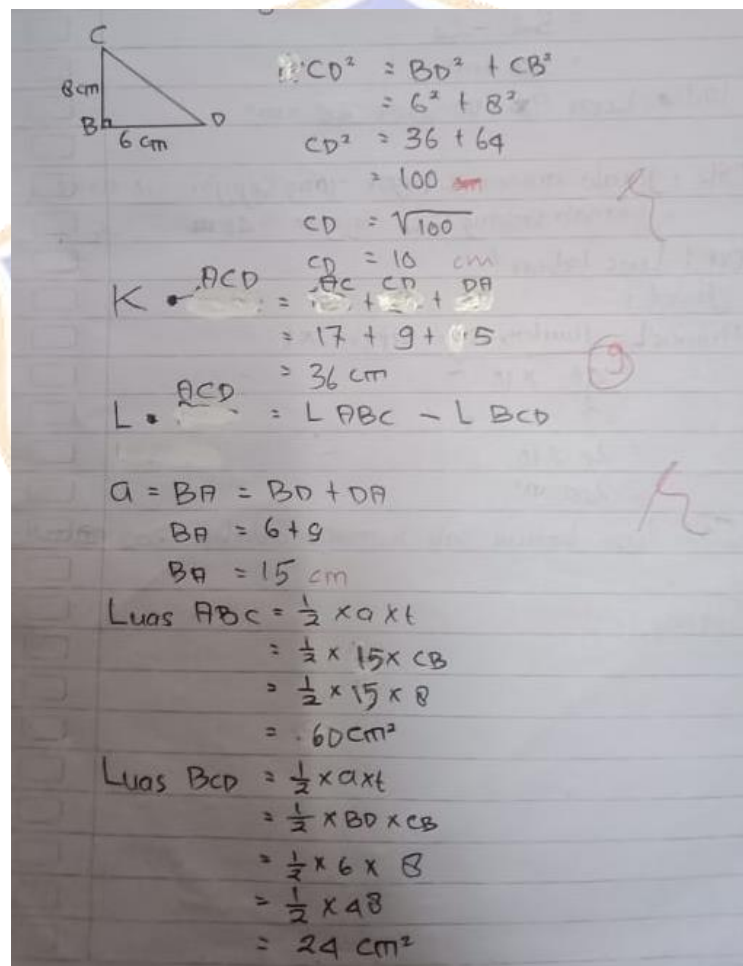 C
8 cm
B
6 cm
D
CD² = BD² + CB²
= 6² + 8²
CD² = 36 + 64
= 100 cm
CD = √100
CD = 10 cm
K ACD = AC + CD + DA
= 17 + 9 + 5
= 36 cm
9
L ACD = L ABC - L BCD
a = BA = BD + DA
BA = 6 + 9
BA = 15 cm
Luas ABC = 1/2 × a × t
= 1/2 × 15 × CB
= 1/2 × 15 × 8
= 60 cm²
Luas BCD = 1/2 × a × t
= 1/2 × BD × CB
= 1/2 × 6 × 8
= 1/2 × 48
= 24 cm²